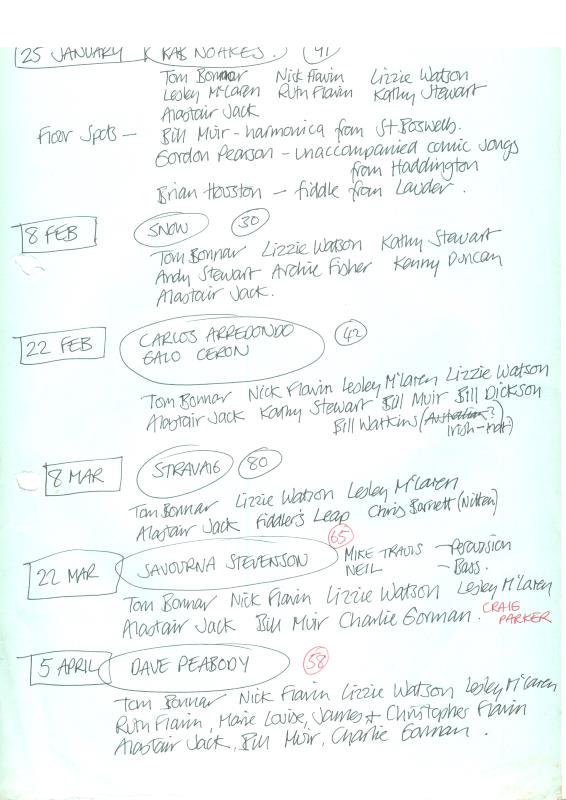 25 JANUARY RAB NOAKES. 41
Tom Bonnar Nick Flavin Lizzie Watson
Lesley McLaren Ruth Flavin Kathy Stewart
Alastair Jack
Floor Spots — Bill Muir - harmonica from St Boswells.
Gordon Pearson - unaccompanied comic songs
from Haddington
Brian Houston — fiddle from Lauder.
8 FEB SNOW 30
Tom Bonnar Lizzie Watson Kathy Stewart
Andy Stewart Archie Fisher Kenny Duncan
Alastair Jack.
22 FEB CARLOS ARREDONDO 42
GALO CERON
Tom Bonnar Nick Flavin Lesley McLaren Lizzie Watson
Alastair Jack Kathy Stewart Bill Muir Bill Dickson
Bill Watkins (Australian?
Irish-not)
8 MAR STRAVAIG 80
Tom Bonnar Lizzie Watson Lesley McLaren
Alastair Jack Fiddler's Leap Chris Barnett (Nitten)
22 MAR SAVOURNA STEVENSON 65 MIKE TRAVIS - Percussion
NEIL - Bass.
Tom Bonnar Nick Flavin Lizzie Watson Lesley McLaren
Alastair Jack Bill Muir Charlie Gorman. CRAIG
PARKER
5 APRIL DAVE PEABODY 58
Tom Bonnar Nick Flavin Lizzie Watson Lesley McLaren
Ruth Flavin, Marie Louise, James + Christopher Flavin
Alastair Jack, Bill Muir, Charlie Gorman.